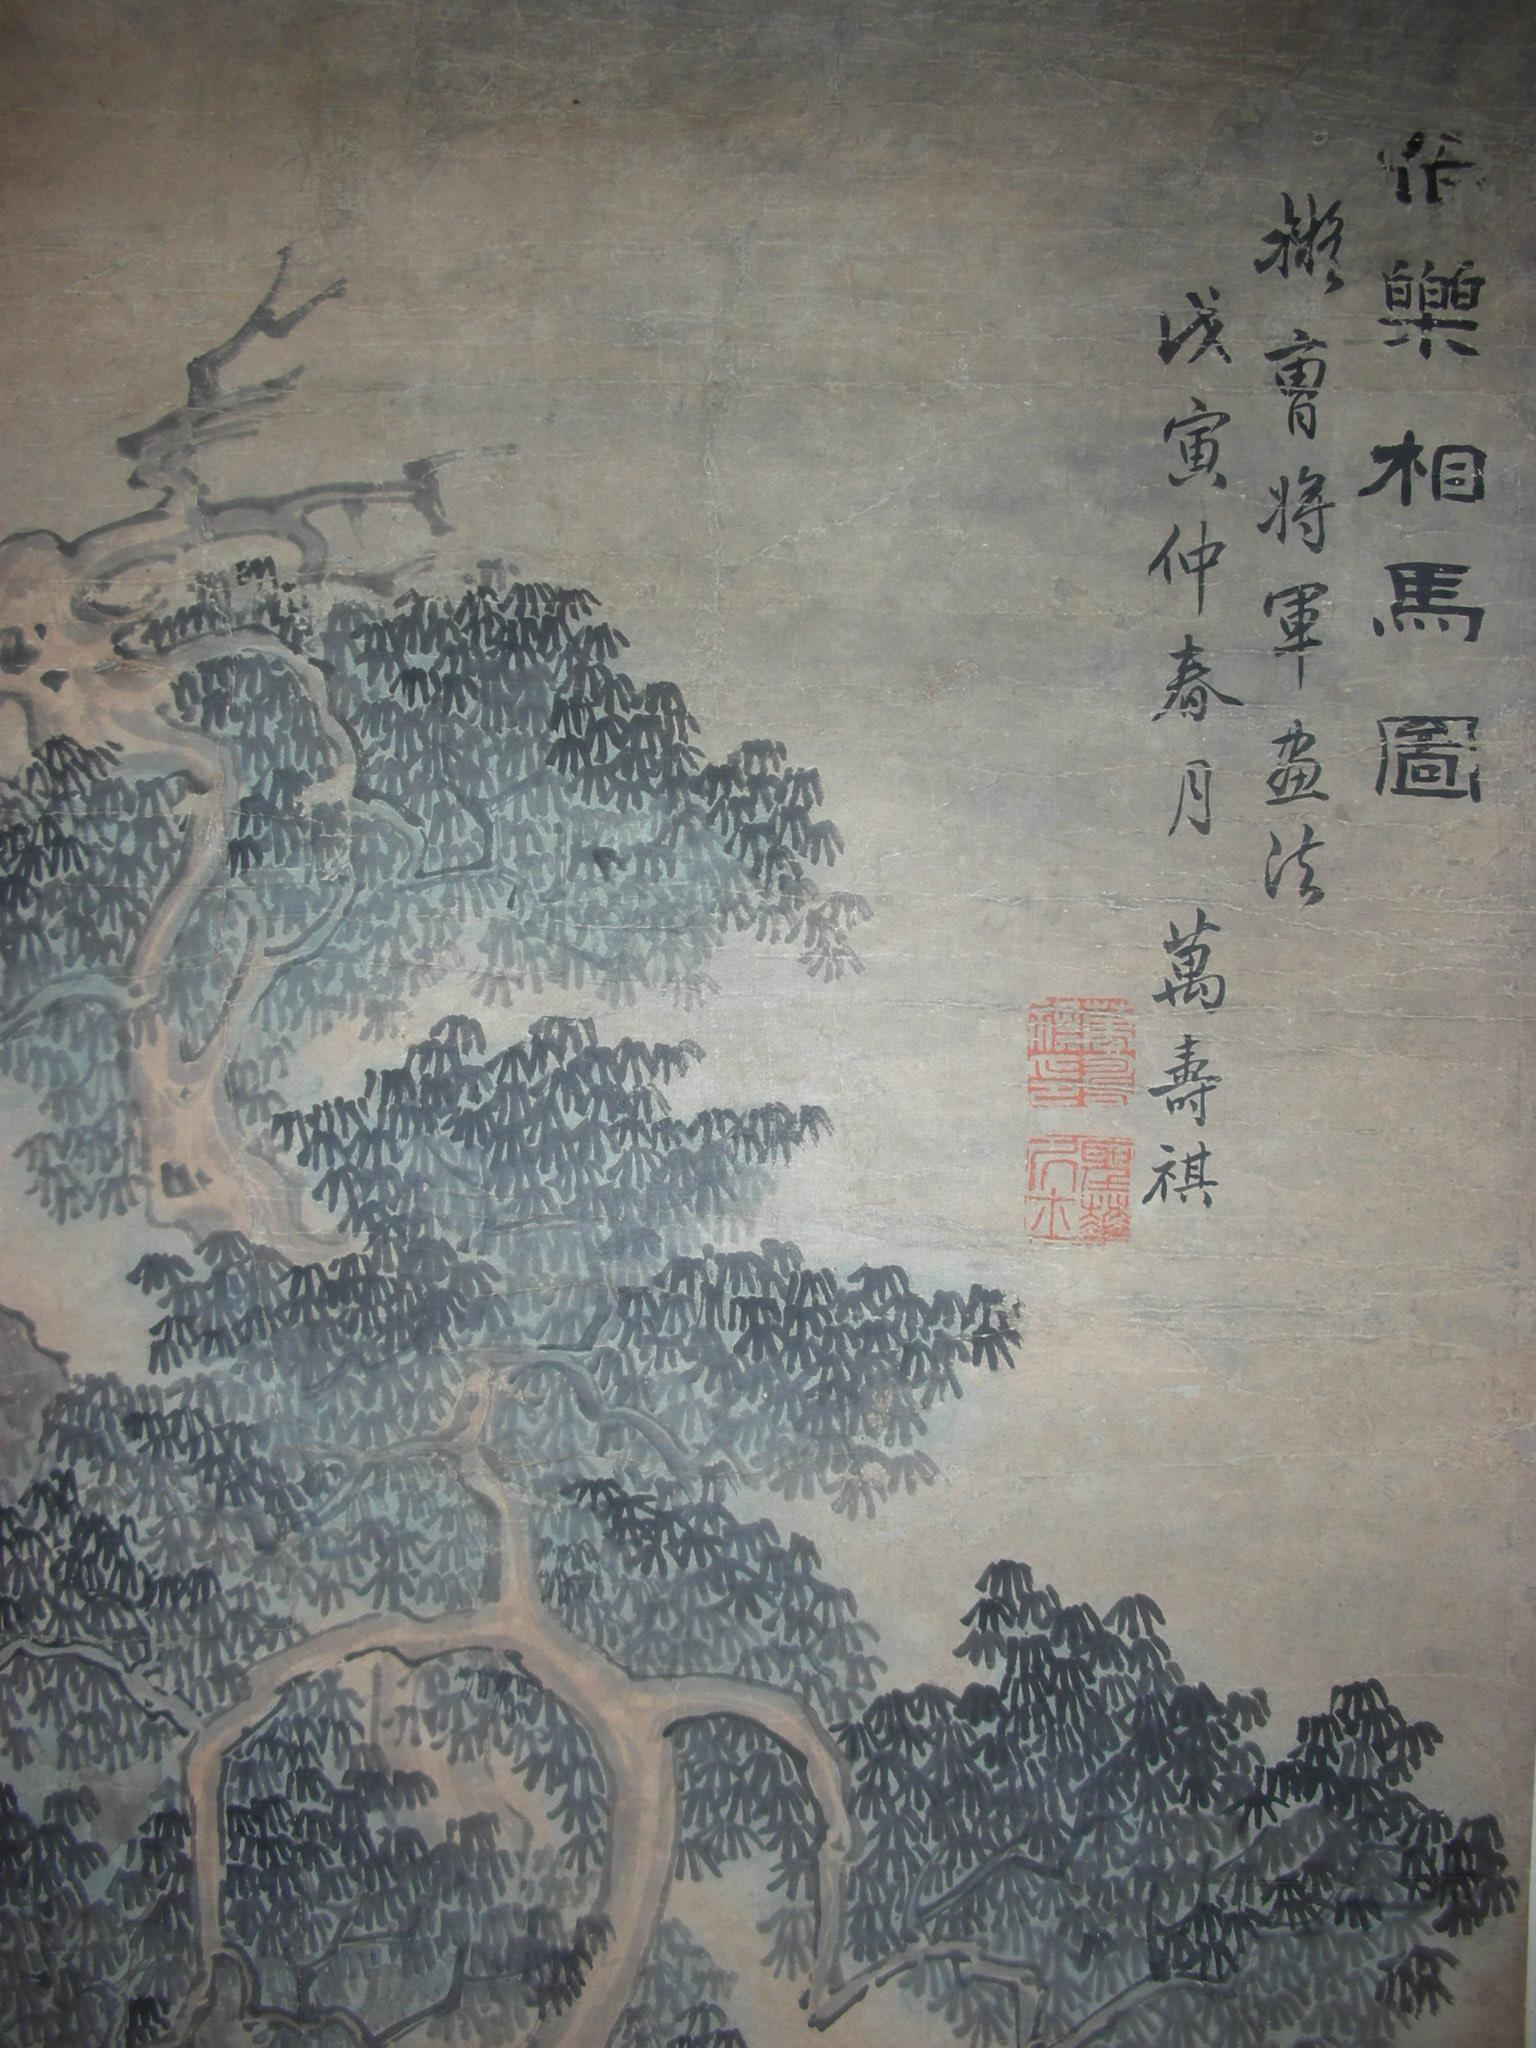 伯樂相馬圖
擬曹將軍畫法
戊寅仲春月 萬壽祺